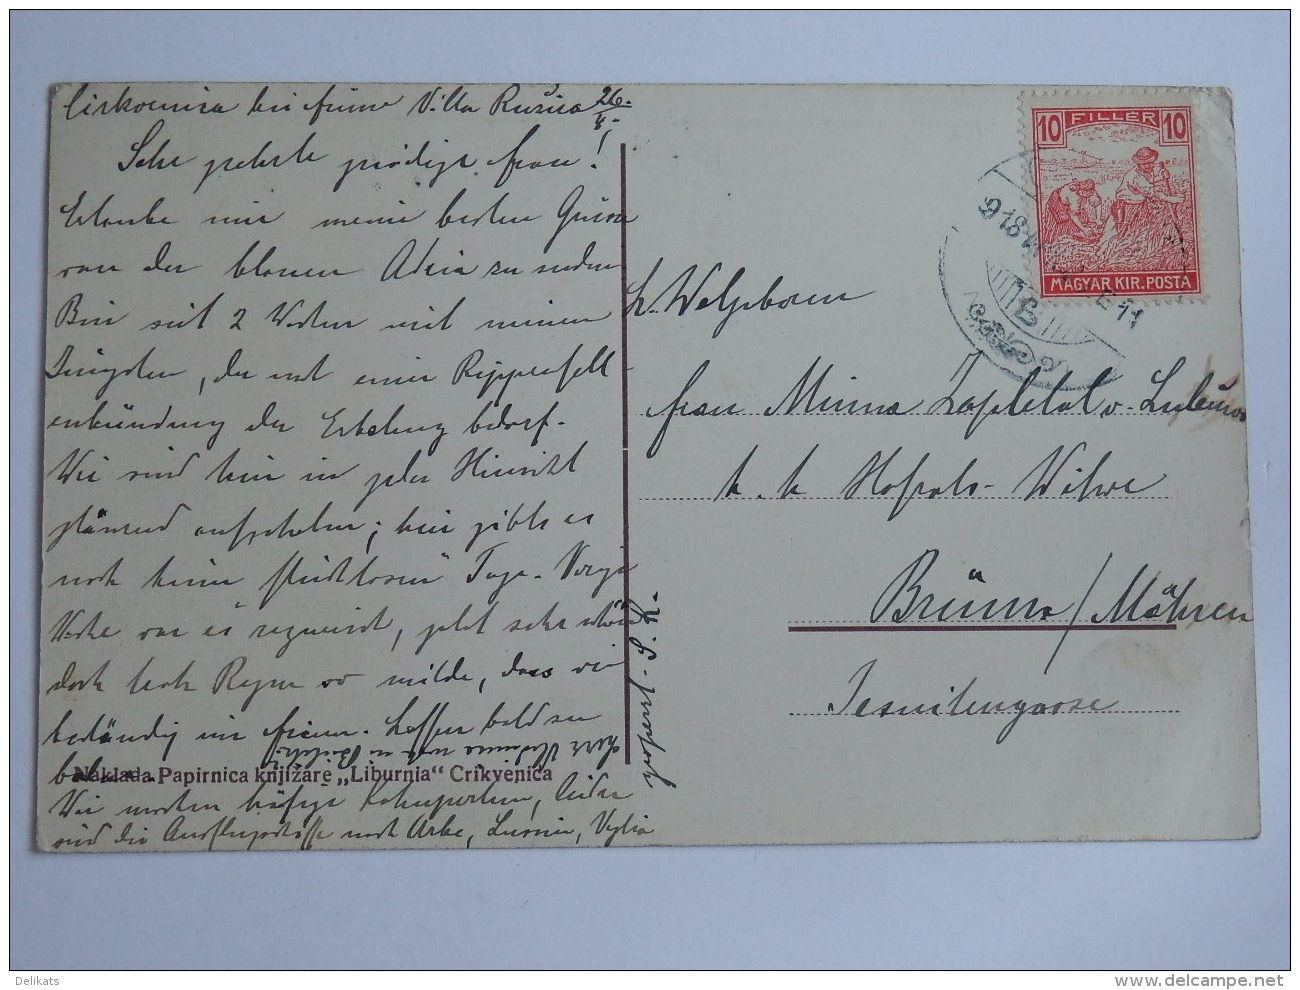 Cirkvenica bei Fiume Villa Ružica 26.
Sehr geehrte gnädige Frau!
Erlaube mir meine besten Grüsse
von der blauen Adria zu senden
Bin seit 2 Wochen mit meinem
Jüngsten, der nach einer Rippenfell-
entzündung der Erholung bedarf.
Wir sind hier in jeder Hinsicht
glänzend aufgehoben; hier gibts es
noch keine fleischlosen Tage. Vorige
Woche war es regnerisch, jetzt sehr schön
doch trotz Regen so milde, dass wir
beständig im Freien. Hoffen bald zu
baden.
Wir machen häufige Kahnpartien, leider
sind die Ausflugsschiffe nach Arbe, Lussin, Veglia
gesperrt. S. R.
Naklada Papirnica knjižare „Liburnia“ Crikvenica
10 FILLÉR 10
MAGYAR KIR. POSTA
918
B
H. Wolgeboren
Frau Minna Zapletal v.
k. k. Hofrats-Witwe
Brünn/Mähren
Jesuitengasse
Delikats
delcampe.net